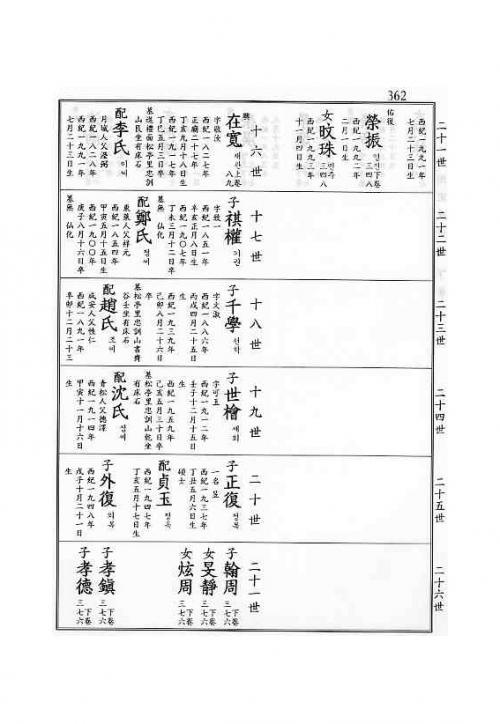 362
二十一世
二十二世
二十三世
二十四世
二十五世
二十六世
西紀一九九一年
七月二十三日生
佑復
榮振 영진 下卷 三四八
西紀一九九二年
二月一日生
女 旼珠 민주 下卷 三四八
西紀一九九三年
十一月四日生
十六世
在寬 재관 上卷 八九
字敬汝
西紀一八二七年
正廟二十七年
丁亥九月十八日生
西紀一九一七年
丁巳五月三日卒
墓進禮面松亭里忠訓
山艮坐有床石
配 李氏 이씨
月城人父
西紀一八二八年
西紀一九九一年
七月二十三日生
十七世
子 祺權 기권
字敎一
西紀一八五一年
辛亥正月八日生
西紀一九〇七年
丁未三月十二日卒
墓無 仙化
配 鄭氏 정씨
東萊人父祥元
西紀一八五四年
甲寅五月十五日生
西紀一九〇〇年
庚子八月十六日卒
墓無 仙化
十八世
子 千學 천학
字文淑
西紀一八八六年
丙戌四月二十五日
生
西紀一九三九年
己卯八月二十六日
卒
墓松亭里忠訓山書齊
谷壬坐有床石
配 趙氏 조씨
咸安人父性仁
西紀一八九一年
辛卯十二月二十三
十九世
子 世檜 세회
字可五
西紀一九一二年
壬子十二月十五日
生
西紀一九五九年
己亥五月三十日卒
墓松亭里忠訓山乾坐
有床石
配 沈氏 심씨
靑松人父德澤
西紀一九一四年
甲寅十一月十六日
生
二十世
子 正復 정복
一名 昱
西紀一九三七年
丁丑五月六日生
碩士
配 貞玉 정옥
西紀一九四七年
丁亥五月十七日生
子 外復 외복
西紀一九四八年
戊子十月二十一日
生
二十一世
子 翰周 下卷 三七六
女 旻靜 下卷 三七六
女 炫周 下卷 三七六
子 孝鎭 下卷 三七六
子 孝德 下卷 三七六